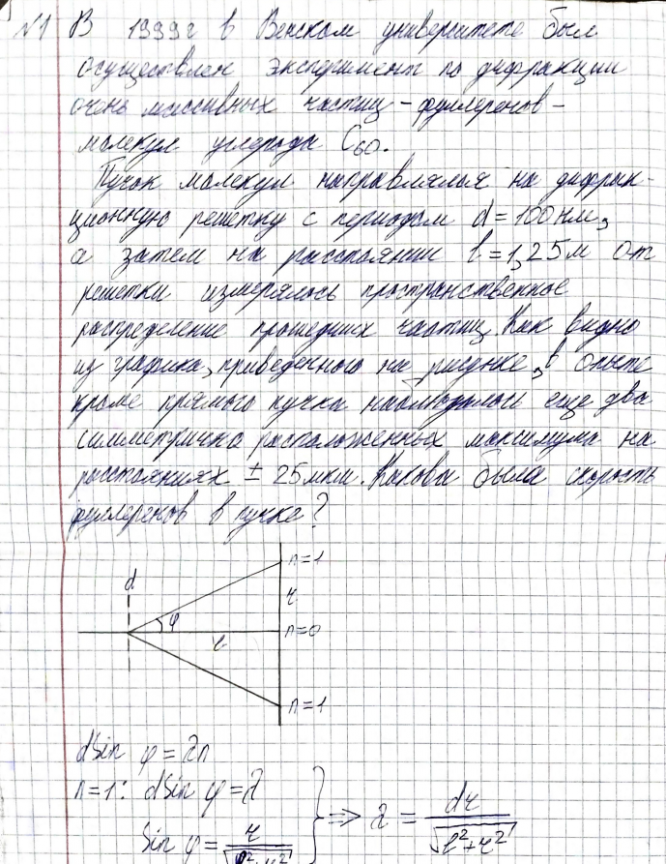 №1 В 1999г в Венском университете был
осуществлен эксперимент по дифракции
очень массивных частиц - фуллеренов -
молекул углерода C₆₀.
Пучок молекул направлялся на дифрак-
ционную решетку с периодом d = 100 нм,
а затем на расстоянии l = 1,25 м от
решетки измерялось пространственное
распределение прошедших частиц. Как видно
из графика, приведенного на рисунке, в опыте
кроме прямого пучка наблюдалось еще два
симметрично расположенных максимума на
расстояниях ± 25 мкм. Какова была скорость
фуллеренов в пучке?
n=1
d
r
φ
n=0
l
n=1
d sin φ = λn
n=1: d sin φ = λ
sin φ = r/√(l²+r²) } ⇒ λ = dr/√(l²+r²)